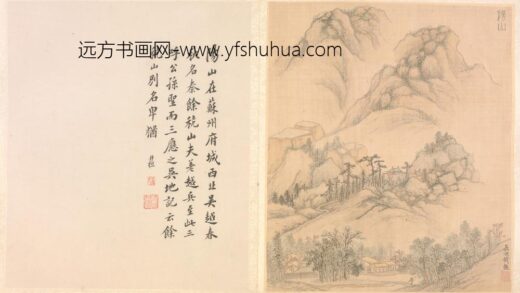 远方书画网 www.yfshuhua.com
陽山
陽山在蘇州府城西北吳越春
秋名秦餘杭山夫差越兵至此三
呼公孫聖而三應之吳地記云餘
杭山別名卑猶